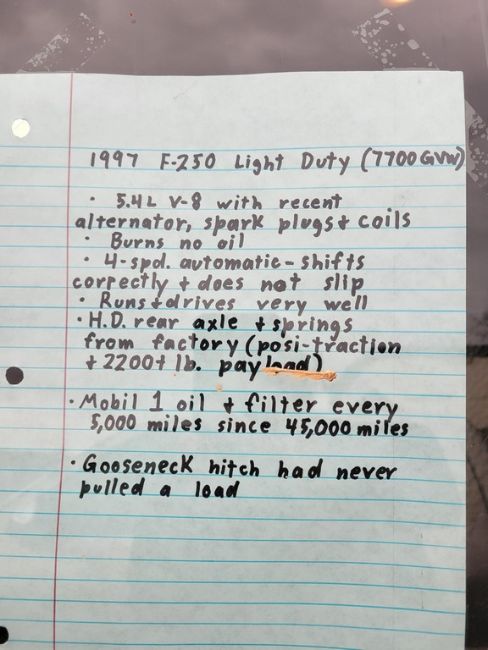 1997 F-250 Light Duty (7700 GVW)
• 5.4L V-8 with recent
alternator, spark plugs + coils
• Burns no oil
• 4-spd. automatic - shifts
correctly + does not slip
• Runs + drives very well
• H.D. rear axle + springs
from factory (posi-traction
+ 2200+ lb. payload)
• Mobil 1 oil + filter every
5,000 miles since 45,000 miles
• Gooseneck hitch had never
pulled a load